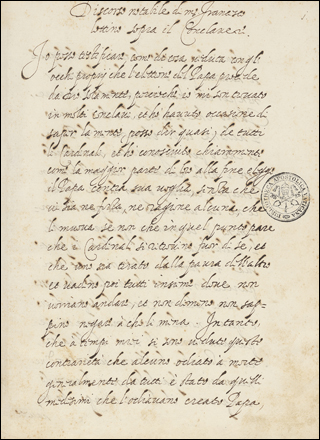 Discorso notabile di mr Giovanfrco
lottino sopra il Conclave
Io posso testificare come cosa veduta con gl'
occhi proprii che l'elettione del Papa procede
da Dio solamente, perciochè io mi son trovato
in molti conclavi, et hò havuto occasione di
saper la mente, posso dir quasi, de tutti
li Cardinali, et hò conosciuto chiaramente
come la maggior parte di loro alla fine elegge
il Papa contra sua voglia, senza che
vi sia ne forza, ne ragione alcuna, che
li muova se non che in quel punto pare
che i Cardinali si trovino fuor di se, et
che uno sia tirato dalla paura dell'altro
et vadino poi tutti insieme dove non
vorriano andare, et non dimeno non sap-
pino negare à chi li mena. Intanto,
che a tempi miei si sono vedute queste
contrarietà che alcuno odiato à morte
generalmente da tutti è stato da quelli
medesimi che l'odiavano creato Papa,